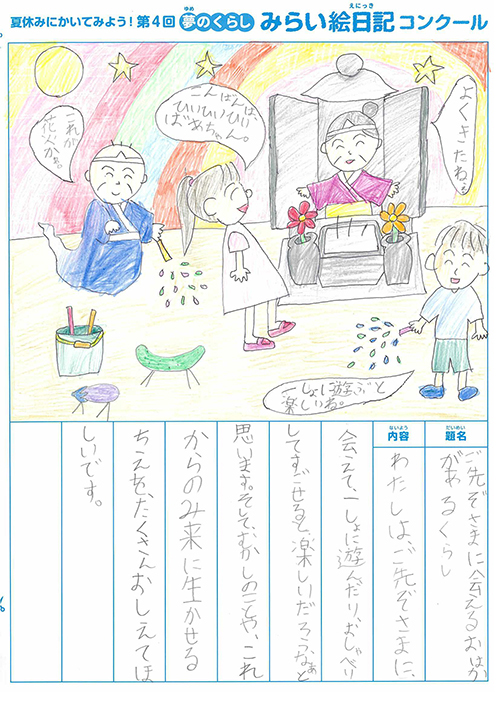 夏休みにかいてみよう！第4回 夢のくらし みらい絵日記コンクール
ゆめ
えにっき
よくきたねぇ
こんばんは、
ひいひいひい
ばあちゃん。
これが
花火かぁ。
一しょに遊ぶと
楽しいね。
だいめい
題名
ご先ぞさまに会えるおはか
があるくらし
ないよう
内容
わたしは、ご先ぞさまに、
会えて、一しょに遊んだり、おしゃべり
してすごせると、楽しいだろうなぁと
思います。そして、むかしのことや、これ
からのみ来に生かせる
ちえを、たくさんおしえてほ
しいです。